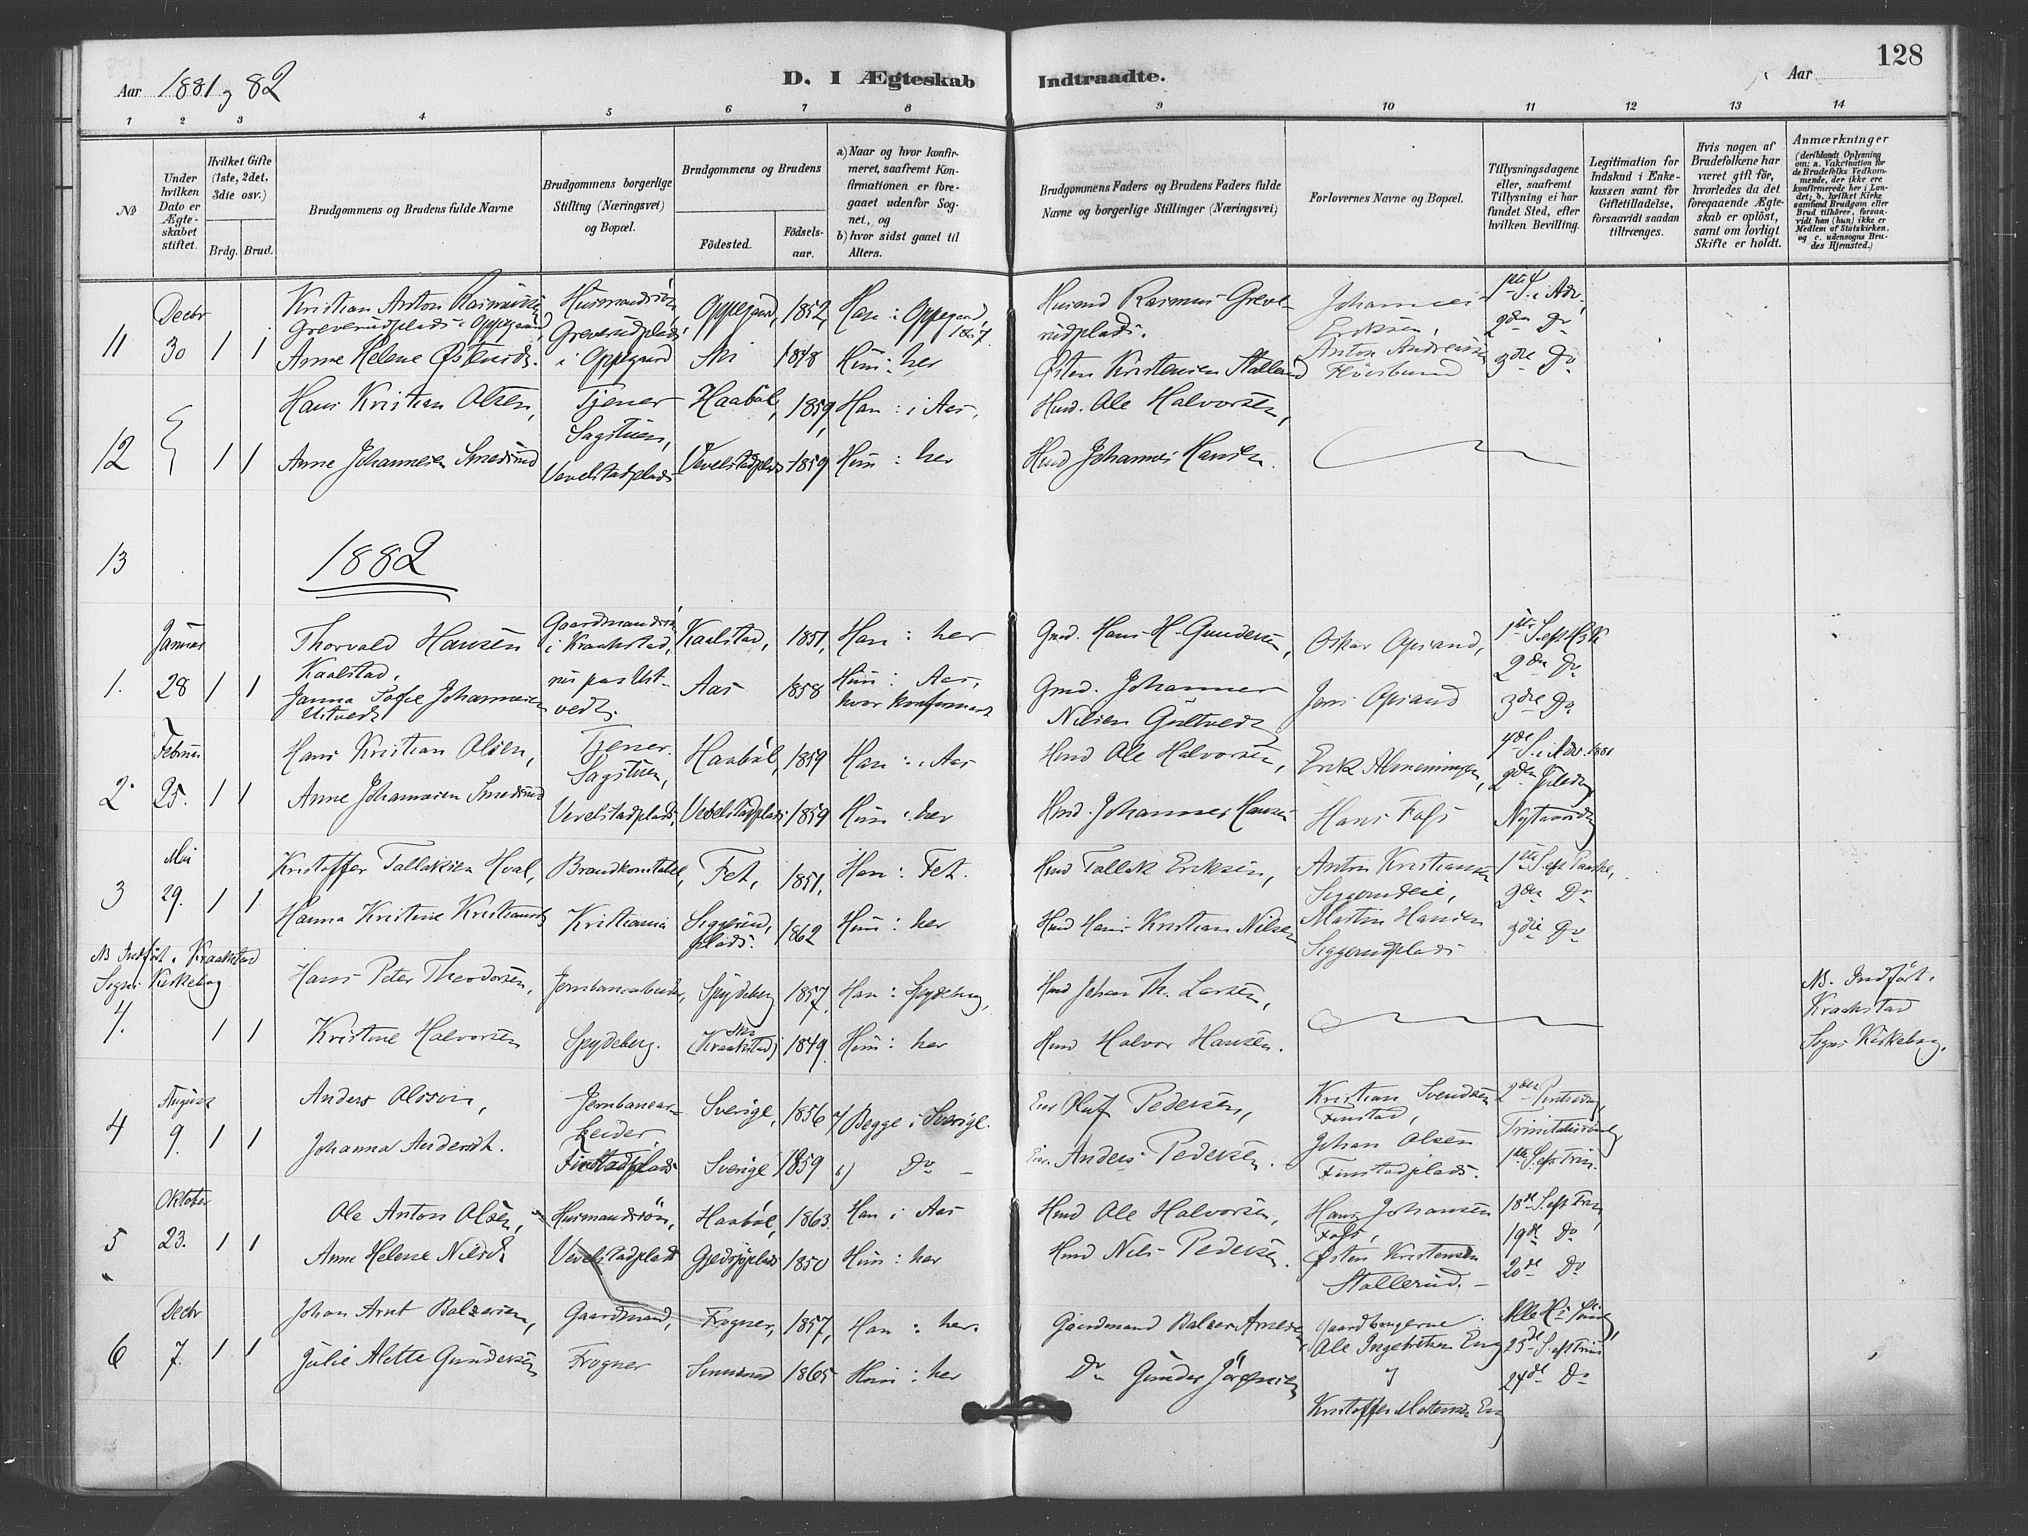 Aar 1881 og 82
D. I Ægteskab Indtraadte.
Aar
128
1 2 3 4 5 6 7 8 9 10 11 12 13 14
No
Under hvilken Dato er Ægteskabet stiftet.
Hvilket Gifte (1ste, 2det, 3die osv.)
Brdg. Brud.
Brudgommens og Brudens fulde Navne
Brudgommens borgerlige Stilling (Næringsvei) og Bopæl.
Brudgommens og Brudens
Fødested.
Fødselsaar.
a) Naar og hvor konfirmeret, saafremt Konfirmationen er foregaaet udenfor Sognet, og
b) hvor sidst gaaet til Alters.
Brudgommens Faders og Brudens Faders fulde Navne og borgerlige Stillinger (Næringsvei)
Forlovernes Navne og Bopæl.
Tillysningsdagene eller, saafremt Tillysning ei har fundet Sted, efter hvilken Bevilling.
Legitimation for Indskud i Enkekassen samt for Giftetilladelse, forsaavidt saadan tiltrænges.
Hvis nogen af Brudefolkene har været gift før, hvorledes du det foregaaende Ægteskab er opløst, samt om lovligt Skifte er holdt.
Anmærkninger
(deriblandt Oplysning om: a. Vakcination for de Brudefolks Vedkommende, der ikke ere konfirmerede her i Landet; b. hvilket Kirkesamfund Brudgom eller Brud tilhører, forsaavidt han (hun) ikke er Medlem af Statskirken, og c. udensogns Brudes Hjemsted.)
11 Decbr 30 1 1
Kristian Anton Rasmussen Greverudplads i Oppegaard, Husmandsøn, Greverudplads i Oppegaard Oppegaard, 1852, Han: Oppegaard, 1867.
Husmd Rasmus Greverudplads. Johannes Eriksen, 1ste S. i Adv., 2den Do
Anne Helene Østensd. Ski 1848 Hun: her
Østen Kristensen Stallerud Anton Andreassen 3die Do
12 1 1
Hans Kristian Olsen, Tjener Sagstuen, Haabøl, 1859, Han: i Aas,
Husd. Ole Halvorsen,
Anne Johannesen Smedsrud Vevelstadplads Vevelstadplads 1859, Hun: her
Husd Johannes Hansen.
13
1882
1. Januar 28 1 1
Thorvald Hansen Kaalstad, Gaardmandsøn i Kraakstad, Kaalstad, 1851, Han: her
Gmd. Hans H. Gundersen, Oskar Opsand, 1ste S. eft H3K 2den Do
Janna Sofie Johannesen Ustvedt nu paa Ustvedt. Aas 1858 Hun: Aas, hvor konfirmeret
Gmd. Johannes Nilsen Opsand 3die Do
2. Februar 25. 1 1
Hans Kristian Olsen, Tjener. Sagstuen, Haabøl, 1859 Han: i Aas
Husd Ole Halvorsen, Erik 4de S. i Adv. 1881 2den Juledag
Anne Johannesen Smedsrud Vevelstadplads, Vevelstadplads 1859 Hun: her
Husd. Johannes Hansen Hans Fols Nytaarsdag
3 Mai 29. 1 1
Kristoffer Tallaksen Hval, Brandkonstabel, Fet, 1851, Han: Fet.
Husd Tallak Eriksen, Anton Kristiansen Siggerudeie, 1ste S. eft Paaske, 2den Do
Hanna Kristine Kristiansd Kristiania Siggerudplads. 1862 Hun: her
Husd Hans Kristian Nilsen Martin Hansen Siggerudplads 3die Do
NB Indført i Kraakstad Sogns Kirkebog
4. 1 1
Hans Peter Theodorsen, Jernbanearbeider, Spydeberg 1857, Han: Spydeberg,
Husd Johan Th. Larsen,
NB. Indført i Kraakstad Sogns Kirkebog.
Kristine Halvorsen Spydeberg. Ski (Kraakstad) 1849. Hun: her
Husd Halvor Hansen.
4 August 9. 1 1
Anders Olsson, Jernbanearbeider Finstadplads Sverige, 1856 Begge i Sverige.
Eier Oluf Pedersen, Kristian Svendsen Finstad, 2den Pintsedag, Trinitatissøndag
Johanna Andersdt. Sverige 1859 Do
Eier. Anders Pedersen. Johan Olsen Finstadplads. 1ste S. eft Trin.
5 Oktober 23. 1 1
Ole Anton Olsen, Husmandssøn, Haabøl, 1863. Han i Aas
Husd Ole Halvorsen, Hans Johansen Fols, 18de S. eft Trin, 19de Do
Anne Helene Nilsdt Vevelstadplads Gjedsjøplads 1850 Hun: her
Husd Nils Pedersen. Østen Kristensen Stallerud. 20de Do
6 Decbr 7. 1 1
Johan Arnt Balzersen, Gaardmand, Frogner, 1857, Han: her.
Gaardmand Balzer Arnesen, Gaardbrugerne Ole Ingebretsen Eng 23de S. eft Trin
Julie Alette Gundersen Frogner 1865 Hun: her
Do Gunder Jørgensen og Kristoffer Mortensen Eng 24de Do